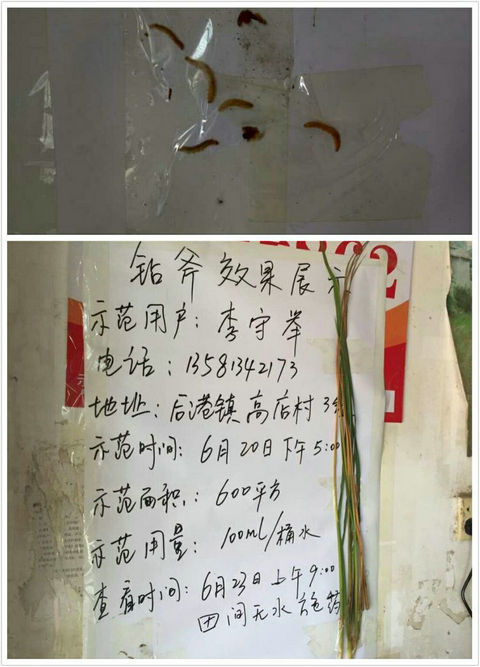 862
钻斧效果展示
示范用户：李守举
电话：13581342173
地址：后港镇高店村3组
示范时间：6月20日下午5:00
示范面积：600平方
示范用量：100ml/桶水
查看时间：6月23日上午9:00
田间无水